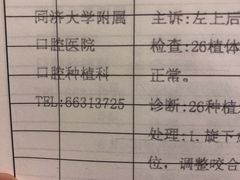 同济大学附属
口腔医院
口腔种植科
TEL:66313725
主诉:左上后
检查:26植体
正常。
诊断:26种植
处理:1.旋下
位,调整咬合